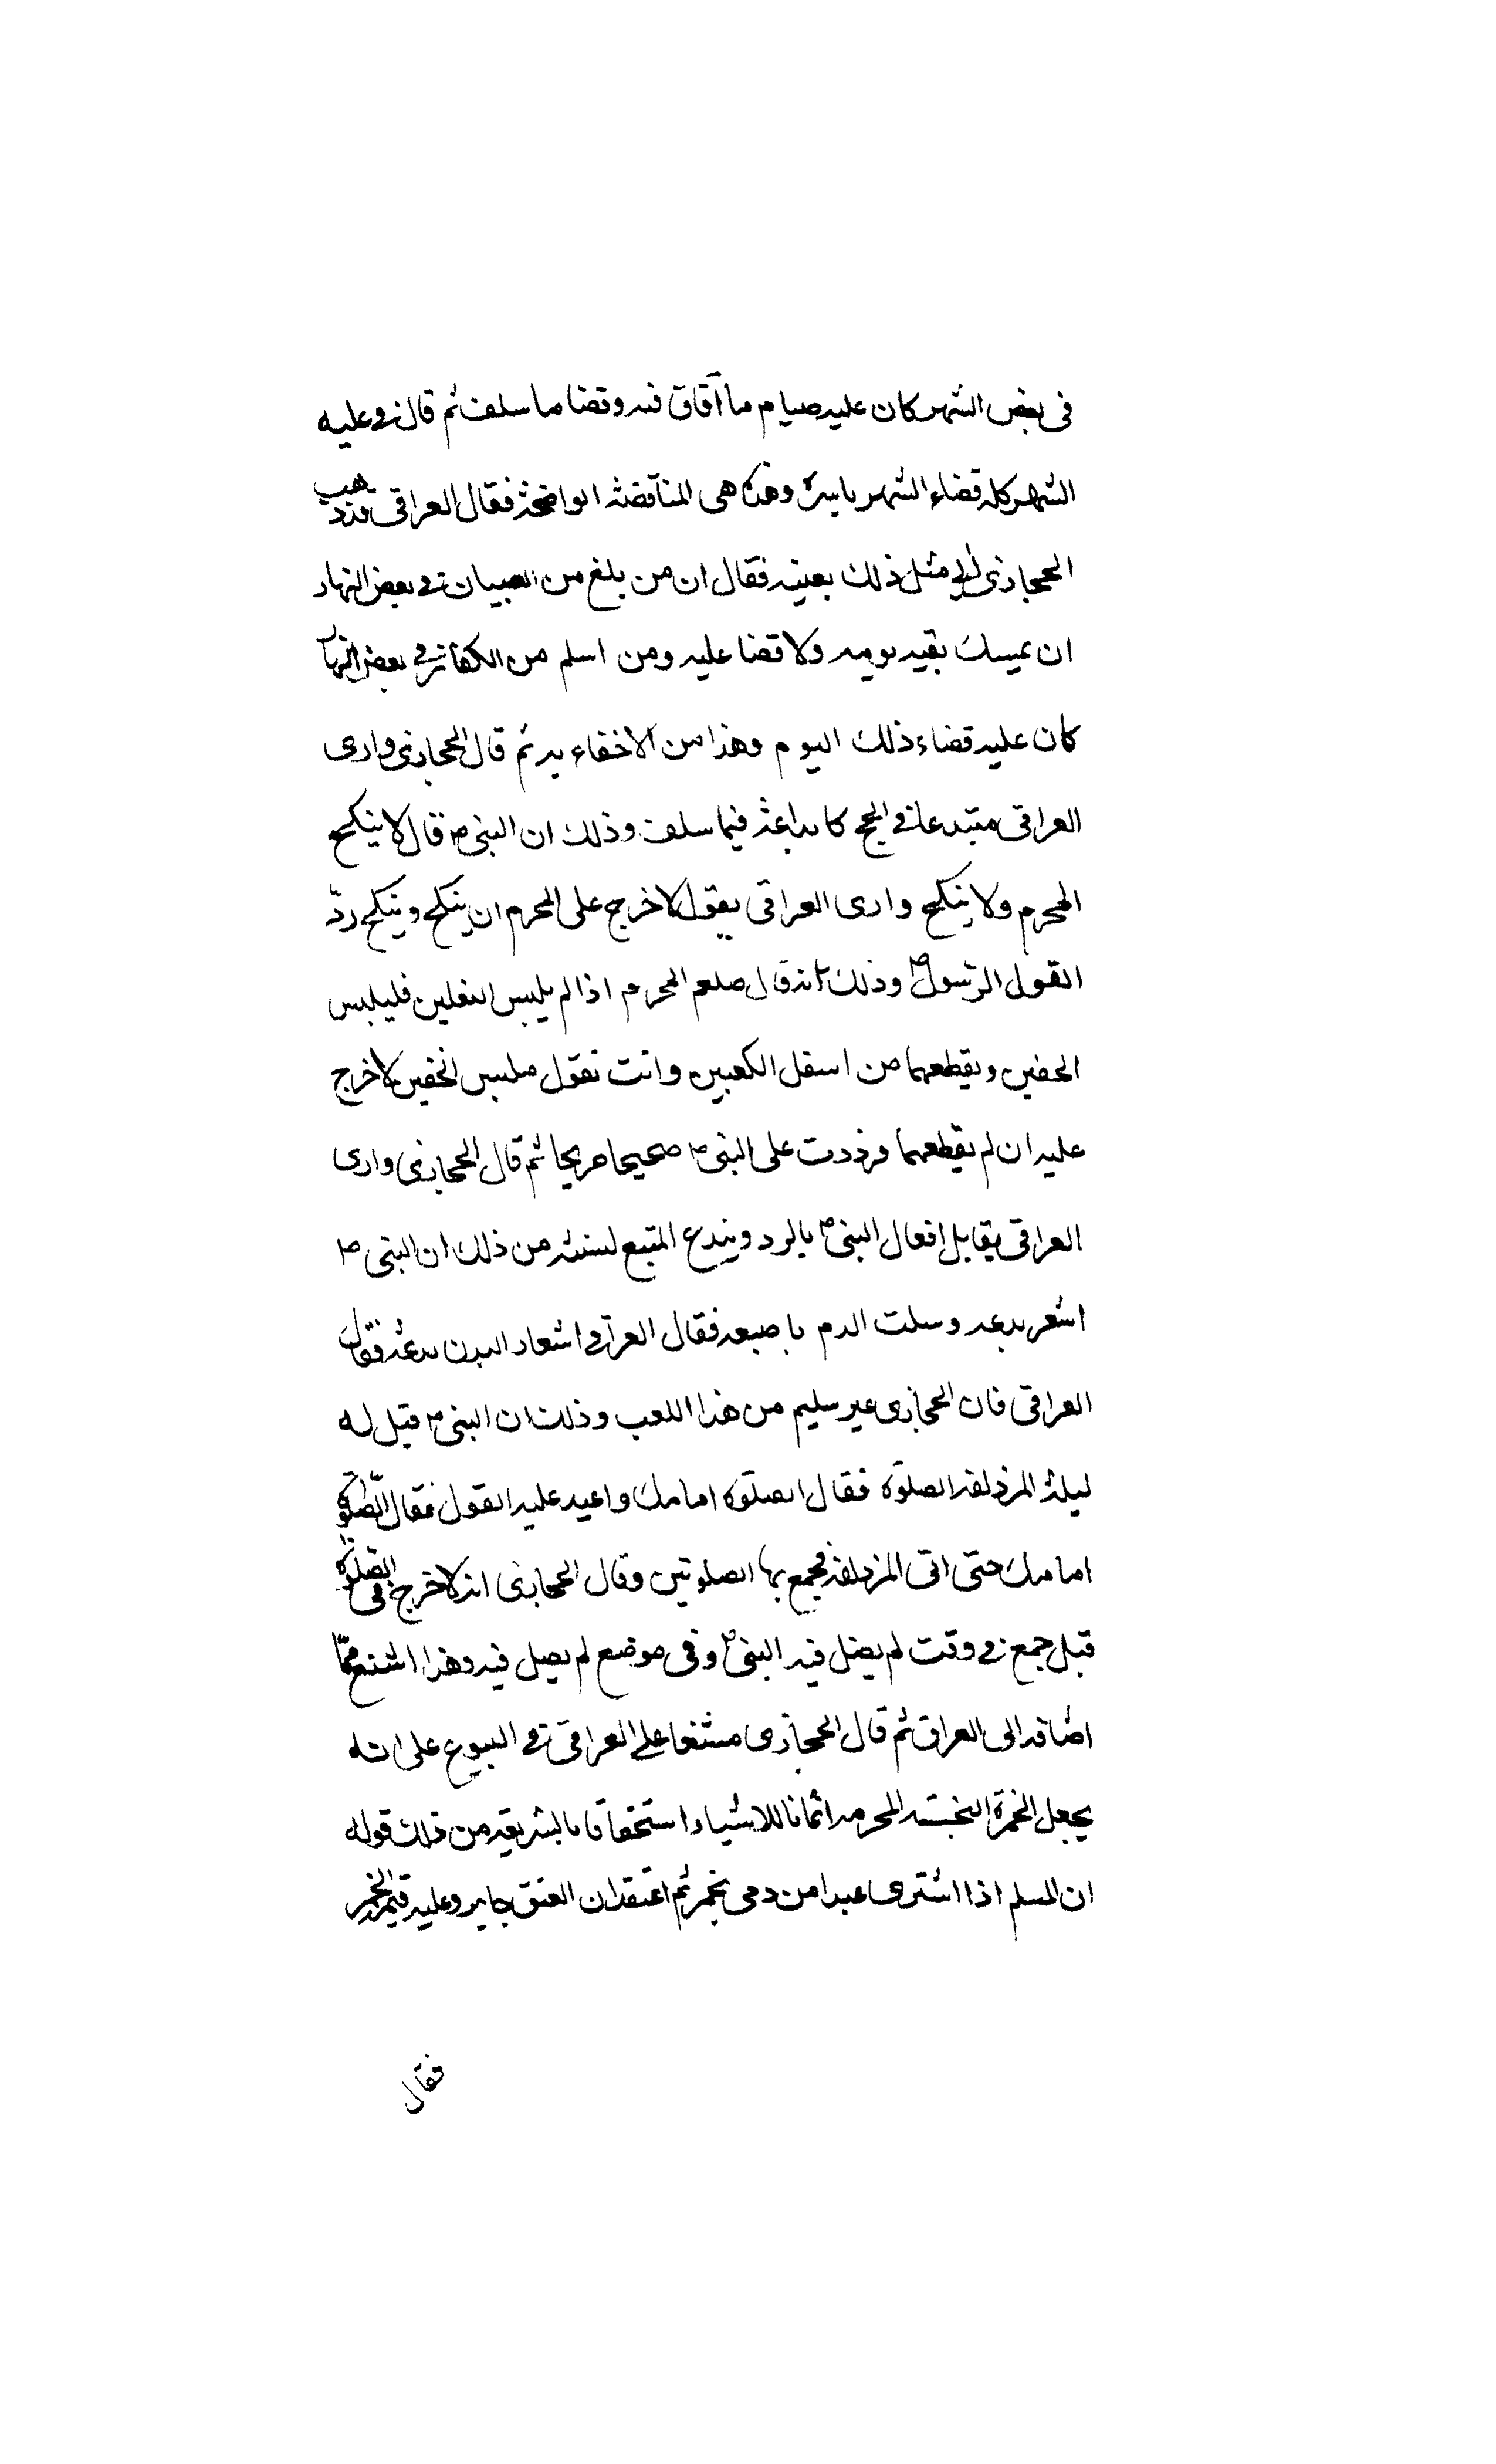 فى بعض الشهر كان عليه صيام ما آقاق فيه وقضا ما سلف ثم قال فى عليه
الشهر كله قضاء الشهر باسره وهذه هى المناقضة الواضحة فقال العراقى قد ذهب
الحجازى الى مثل ذلك بعينه فقال ان من بلغ من الصبيان فى بعض النهار
ان يمسك بقيه يومه ولا قضا عليه ومن اسلم من الكفار فى بعض النهار
كان عليه قضاء ذلك اليوم وهذا من لاخفاء به ثم قال الحجازى وارى
العراقى مبتدعا فى الحج كابداعه فيما سلف وذلك ان النبى ص قال لا ينكح
المحرم ولا ينكح وارى العراقى يقول لا حرج على المحرم ان ينكح وينكح ردّ
القول الرسول ص وذلك انه قال صلعم المحرم اذا لم يلبس النعلين فليلبس
الخفين ويقطعهما من اسفل الكعبين وانت تقول يلبس الخفين لا حرج
عليه ان لم يقطعهما فرددت على النبى ص صحيحا صريحا ثم قال الحجازى وارى
العراقى يقابل افعال النبى ص بالرد ويبدع المتبع لسنته من ذلك ان النبى ص
اشعر بدعه وسلت الدم باصبعه فقال العراقى اشعار البدن بدعة فقال
العراقى فان الحجازى غير سليم من هذا اللعب وذلك ان النبى ص قيل له
ليلة المزدلفه الصلوة فقال الصلوة امامك واعيد عليه القول فقال الصلوة
امامك حتى اتى المزدلفه فجمع بها الصلوتين وقال الحجازى انه لا حرج فى الصلوة
قبل جمع فى وقت لم يصل فيه النبى ص وفى موضع لم يصل فيه وهذا اشنع ممّا
اضافه الى العراق ثم قال الحجازى مشنعا على العراقى فى البيوع على انه
يجعل الخمرة النجسة المحرمه اثمانا للاشياء استخفافا بالشريعه من ذلك قوله
ان المسلم اذا اشترى عبدا من ذمى بخمر ثم اعتقه ان العتق جايز وعليه قيمة الخمر
فقال